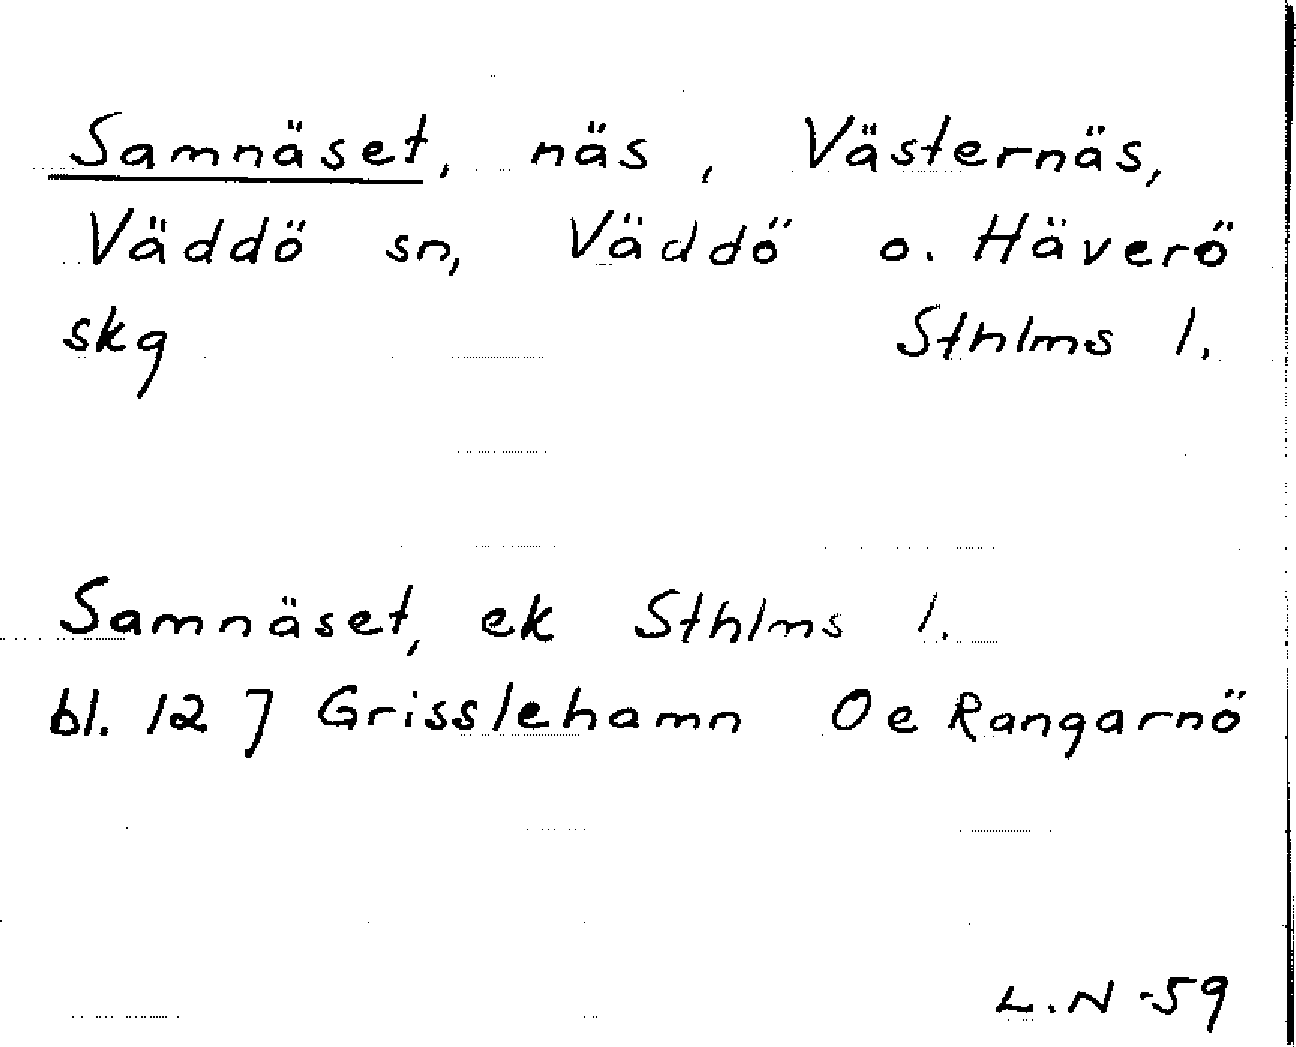 Samnäset, näs, Västernäs,
Väddö sn, Väddö o. Häverö
skg Sthlms l.
Samnäset, ek Sthlms l.
bl. 12 7 Grisslehamn Oe Rangarnö
L.N -59